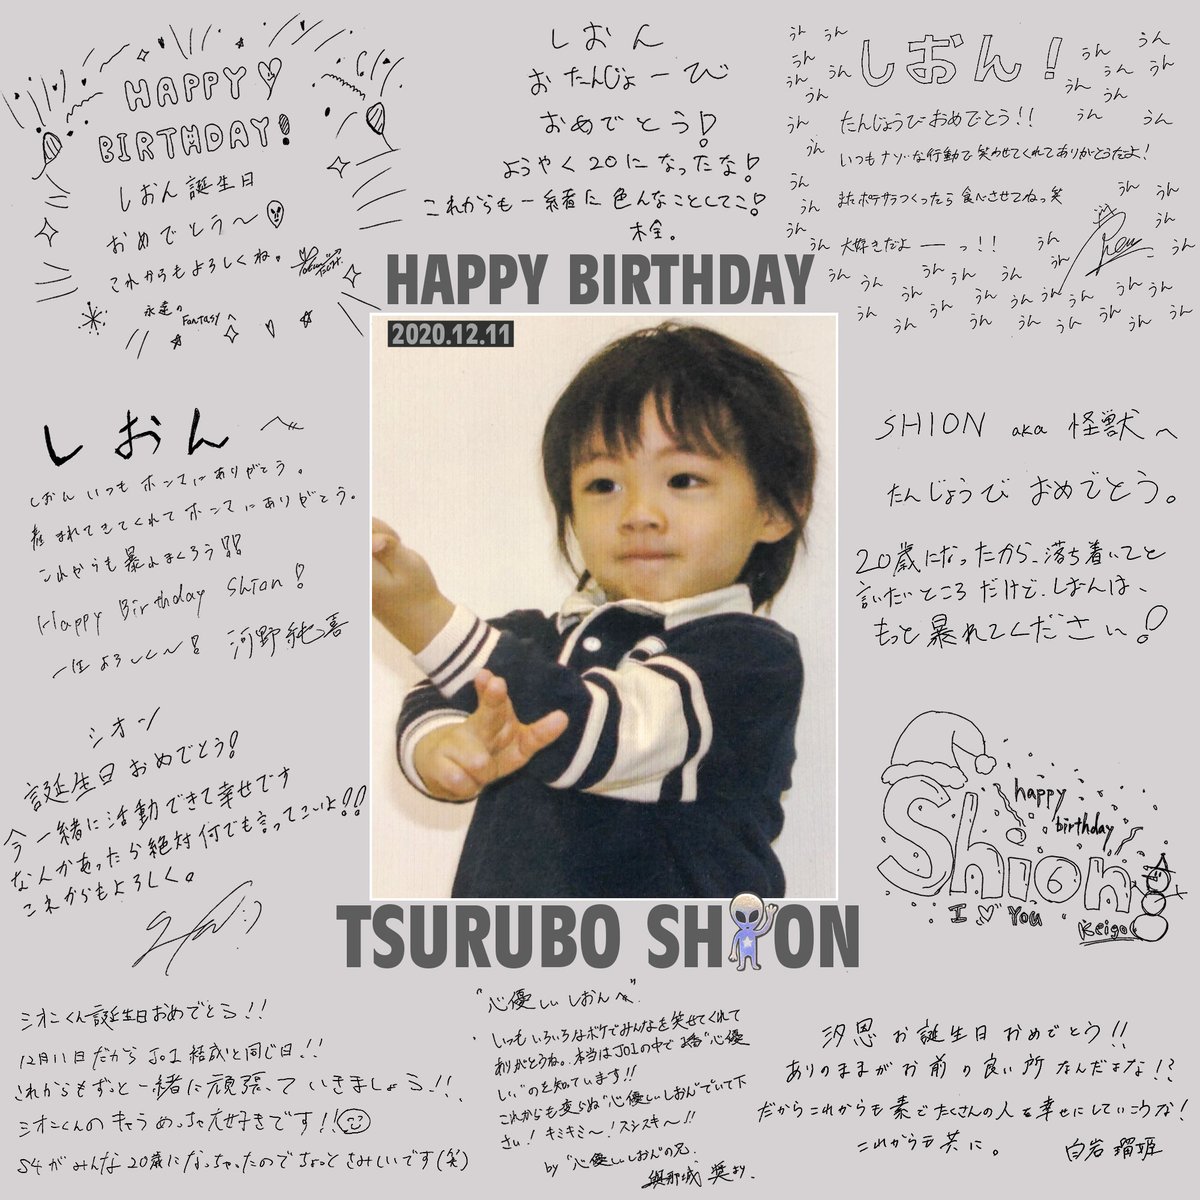 HAPPY♡
BIRTHDAY!
しおん誕生日
おめでとう〜
これからもよろしくね。
永遠の Fantasy へ
しおん
おたんじょーび
おめでとう!
ようやく20になったな!
これからも一緒に色んなことしてこ!
拴。
しおん!
たんじょうびおめでとう!!
いつもナゾな行動で笑わせてくれてありがとうだよ!
またポテサラつくったら食べさせてねっ笑
大好きだよーーっ!!
うん うん うん うん うん うん うん うん うん うん
HAPPY BIRTHDAY
2020.12.11
しおんへ
しおん いつもホンマにありがとう。
産まれてきてくれてホンマにありがとう。
これからも暴れまくろう!!
Happy Birthday Shion!
一生よろしく〜! 河野純喜
SHION aka 怪獣へ
たんじょうび おめでとう。
20歳になったから、落ち着いてと
言いたいところだけど、しおんは、
もっと暴れてください!
シオン
誕生日おめでとう!
今一緒に活動できて幸せです
なんかあったら絶対何でも言ってこいよ!!
これからもよろしく。
happy
birthday
Shion
I ♡ YOU
Keigo
TSURUBO SHION
シオンくん誕生日おめでとう!!
12月11日だから JO1 結成と同じ日!!
これからもずっと一緒に頑張っていきましょう!!
シオンくんのキャラめっちゃ大好きです!!
S4がみんな20歳になっちゃったのでちょっとさみしいです(笑)
"心優しいしおんへ"
いつもいろいろなボケでみんなを笑せてくれて
ありがとうね。本当はJO1の中で1番"心優
しい"のを知っています!!
これからも変らぬ"心優しいしおん"でいて下
さい! キミキミ〜! スシスキ〜!!
by "心優しいしおん"の兄
與那城 奨より
汐恩お誕生日おめでとう!!
ありのままがお前の良い所なんだよな!?
だからこれからも素でたくさんの人を幸せにしていこうな!
これからも共に。 白岩瑠姫